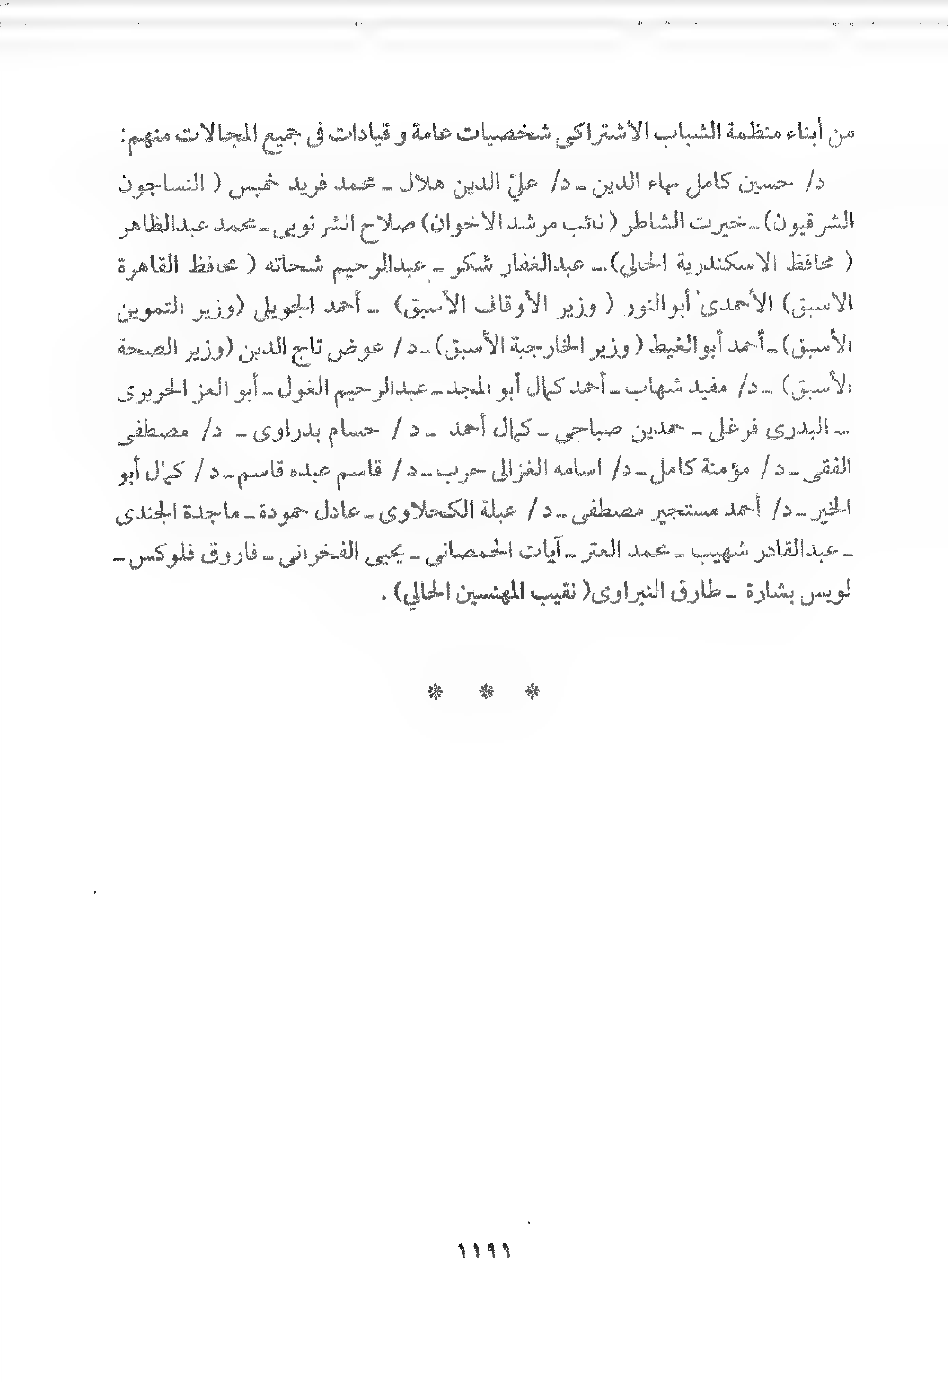 من أبناء منظمة الشباب الأشتراكي شخصيات عامة و قيادات في جميع المجالات منهم:
د/ حسين كامل بهاء الدين ـ د/ عليّ الدين هلال ـ محمد فريد خميس ( النساجون
الشرقيون) ـ خيرت الشاطر ( نائب مرشد الاخوان) صلاح الشرنوبي ـ محمد عبدالظاهر
( محافظ الاسكندرية الحالي) ـ عبدالغفار شكر ـ عبدالرحيم شحاته ( محافظ القاهرة
الاسبق) الأحمدى أبو النور ( وزير الأوقاف الأسبق) ـ أحمد الجويلي (وزير التموين
الأسبق) ـ أحمد أبو الغيط ( وزير الخارجية الأسبق) ـ د/ عوض تاج الدين (وزير الصحة
الأسبق) ـ د/ مفيد شهاب ـ أحمد كمال أبو المجد ـ عبدالرحيم الغول ـ أبو العز الحريرى
ـ البدرى فرغلى ـ حمدين صباحى ـ كمال أحمد ـ د / حسام بدراوى ـ د/ مصطفى
الفقى ـ د/ مؤمنة كامل ـ د/ اسامه الغزالى حرب ـ د/ قاسم عبده قاسم ـ د/ كمال أبو
الخير ـ د/ أحمد مستجير مصطفى ـ د/ عبلة الكحلاوى ـ عادل حمودة ـ ماجدة الجندى
ـ عبدالقادر شهيب ـ محمد العتر ـ آيات الحمصانى ـ يحيى الفخرانى ـ فاروق فلوكس ـ
لويس بشارة ـ طارق النبراوى( نقيب المهنسين الحالي) .
* * *
١١٩١